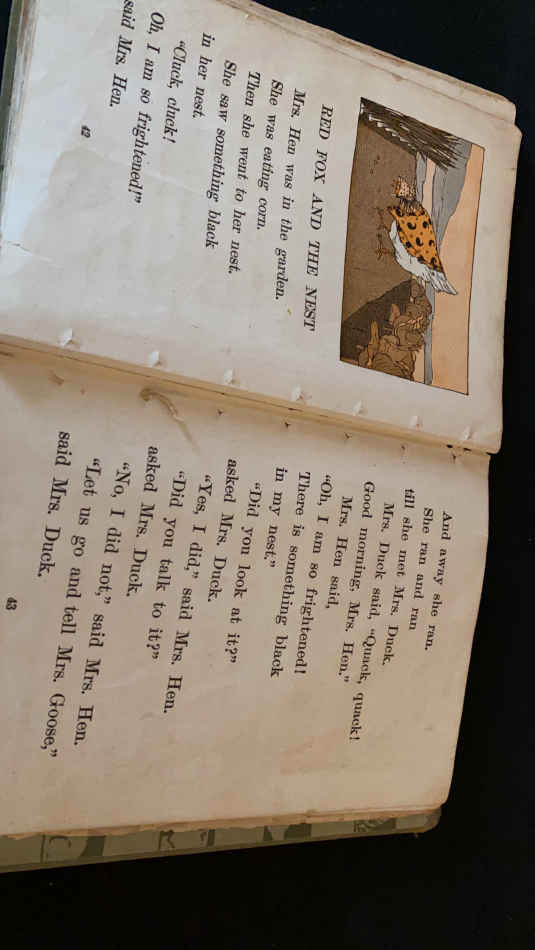 RED FOX AND THE NEST
Mrs. Hen was in the garden.
She was eating corn.
Then she went to her nest.
She saw something black
in her nest.
“Cluck, cluck!
Oh, I am so frightened!”
said Mrs. Hen.
42
And away she ran.
She ran and ran
till she met Mrs. Duck.
Mrs. Duck said, “Quack, quack!
Good morning, Mrs. Hen.”
Mrs. Hen said,
“Oh, I am so frightened!
There is something black
in my nest.”
“Did you look at it?”
asked Mrs. Duck.
“Yes, I did,” said Mrs. Hen.
“Did you talk to it?”
asked Mrs. Duck.
“No, I did not,” said Mrs. Hen.
“Let us go and tell Mrs. Goose,”
said Mrs. Duck.
43